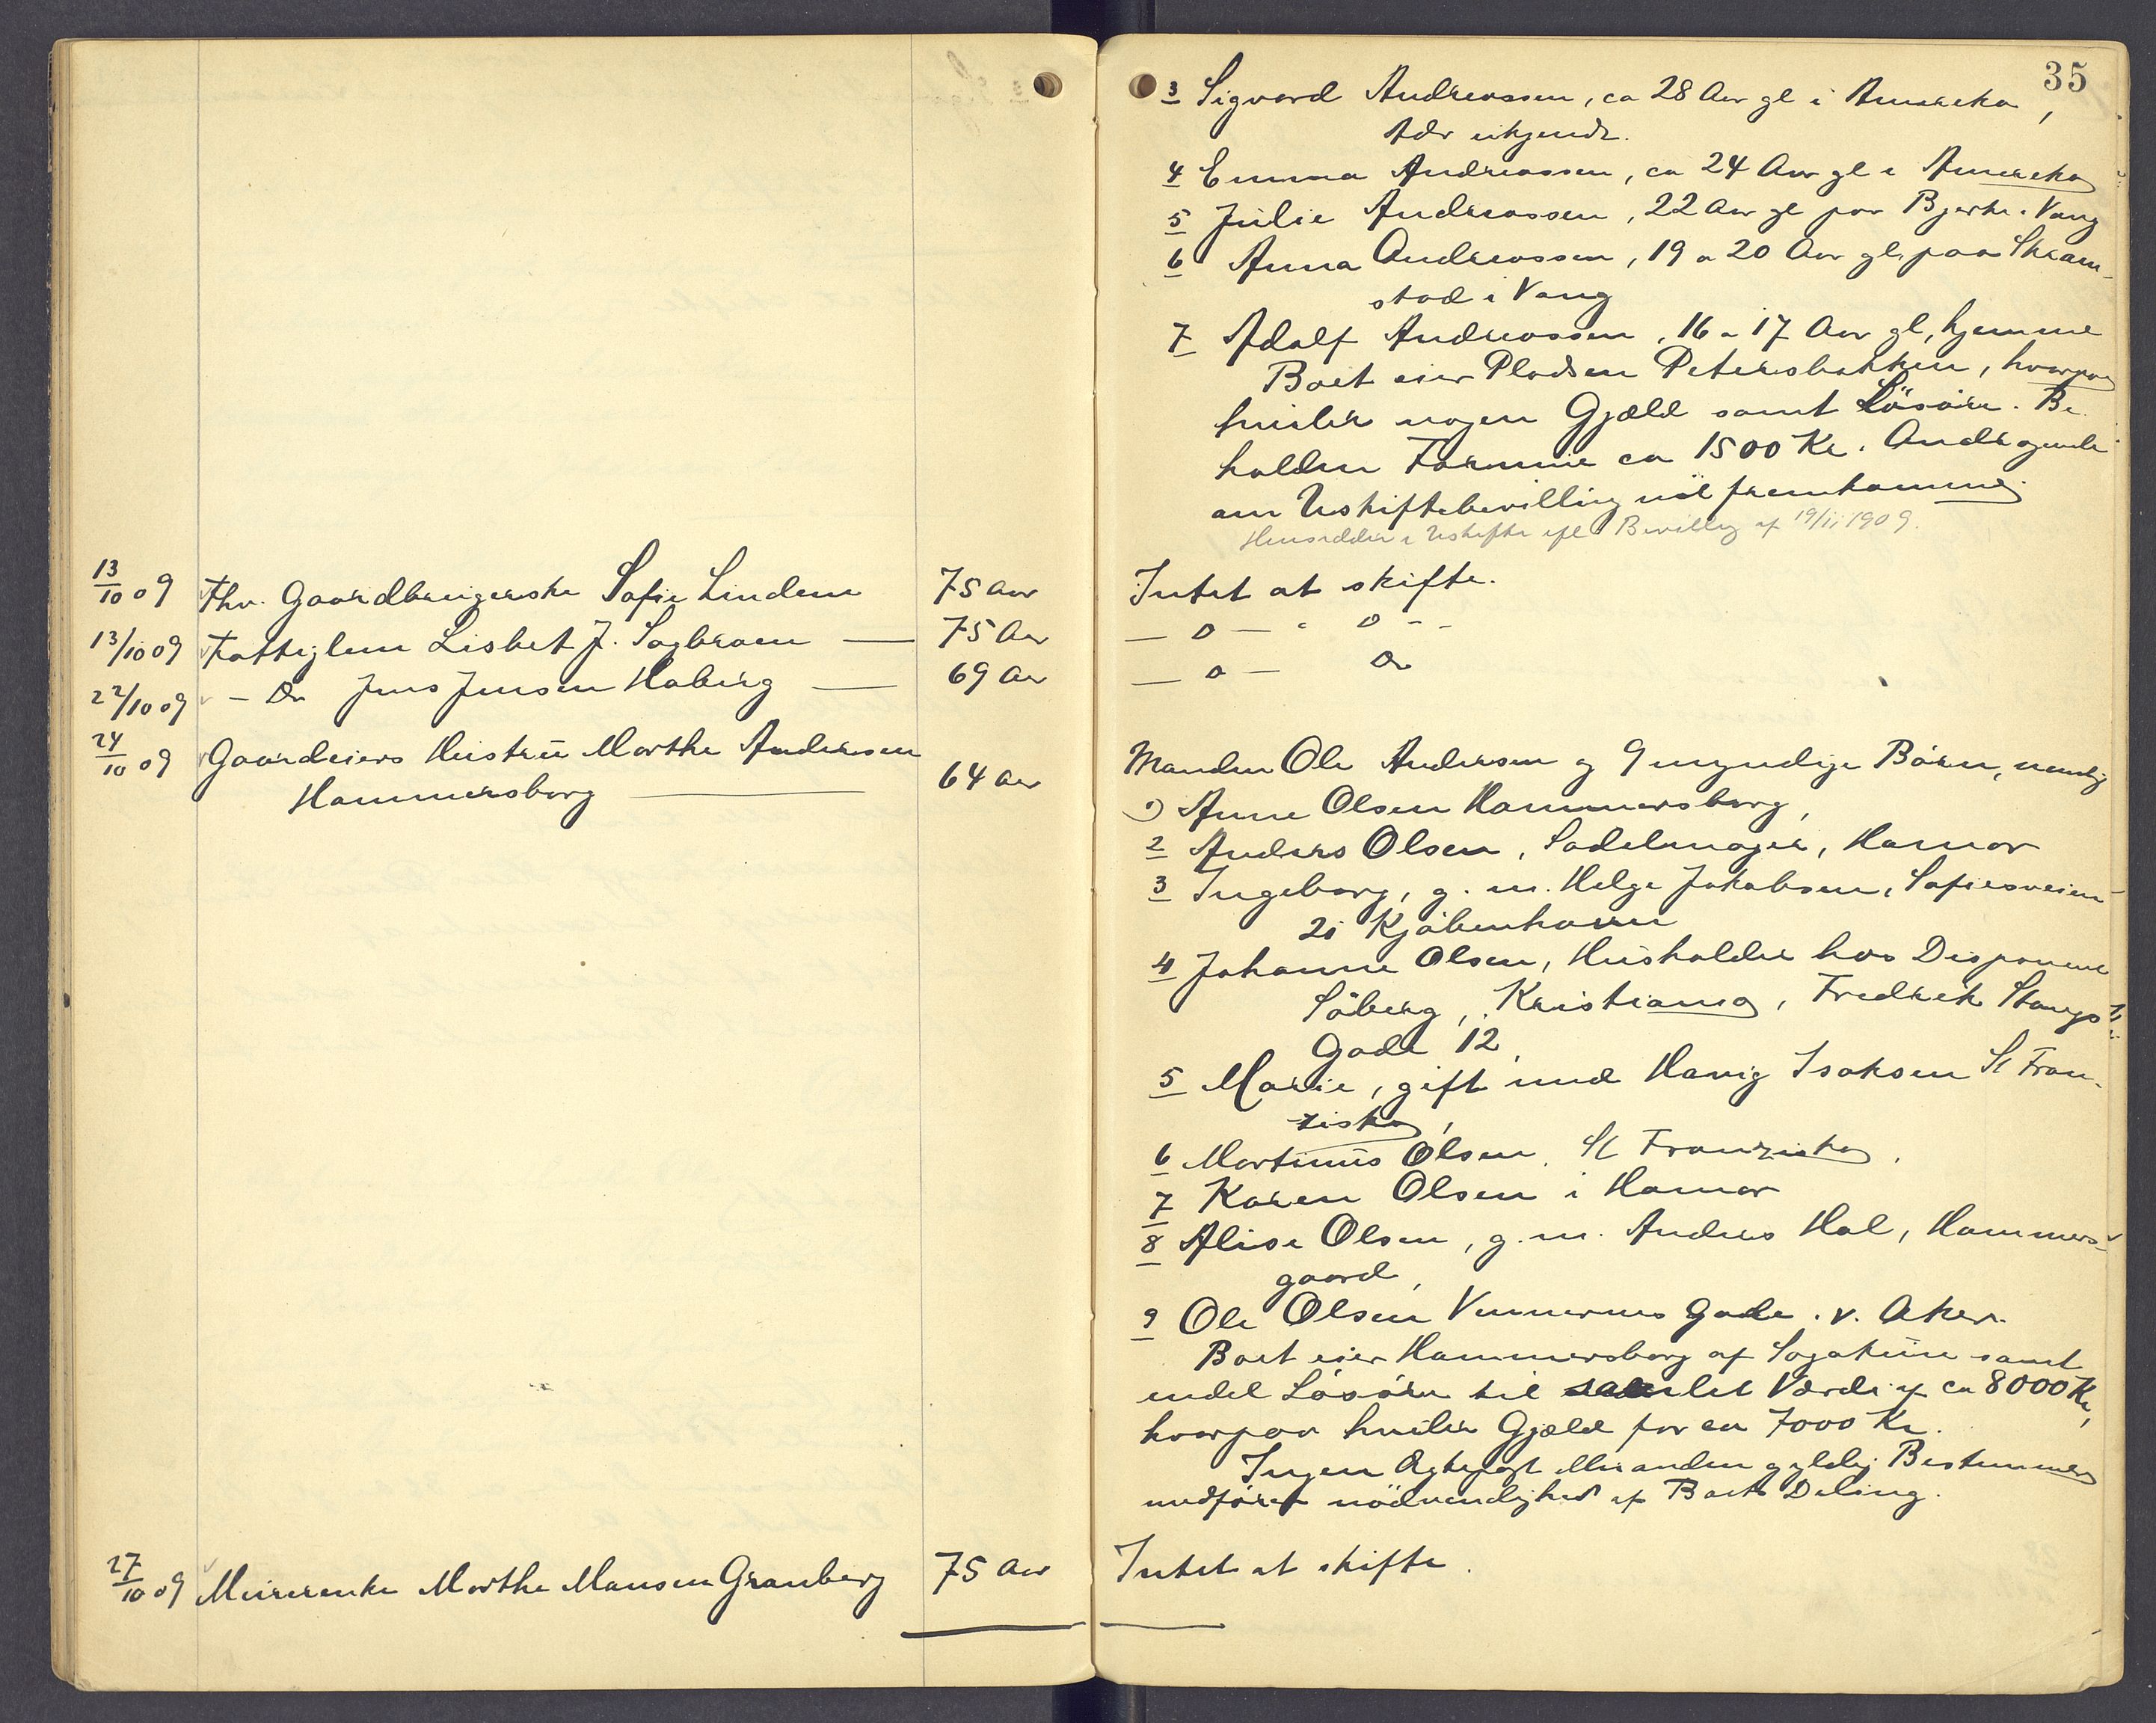 35
3 Sigvard Andreassen, ca 28 Aar gl i Amerika,
Adr ukjendt.
4 Emma Andreassen, ca 24 Aar gl i Amerika
5 Julie Andreassen, 22 Aar gl paa Bjerke i Vang
6 Anna Andreassen, 19 a 20 Aar gl, paa Skram-
stad i Vang
7 Adolf Andreassen, 16 a 17 Aar gl, hjemme
Boet eier Pladsen Petersbakken, hvorpaa
hviler nogen Gjæld samt Lösöre. Be-
holden Formue ca 1500 Kr. Andragende
om Uskiftebevilling vil fremkomme.
Hensidder i Uskifte efter Bevilling af 19/11 1909.
13/10 09 Fhv. Gaardbrugerske Sofie Lindem 75 Aar Intet at skifte.
13/10 09 Fattiglem Lisbet J. Sagbraaen — 75 Aar — o — " o - -
22/10 09 - Do Jens Jensen Haberg — 69 Aar — o — Do
24/10 09 Gaardeiers Hustru Marthe Andersen
Hammersborg — 64 Aar
Manden Ole Andersen og 9 myndige Börn, nemlig
1) Anne Olsen Hammersborg,
2 Anders Olsen, Sadelmager, Hamar
3 Ingeborg, g. m. Helge Jakobsen, Sofiesveien
21 Kjöbenhavn
4 Johanne Olsen, Husholder hos Disponent
Söberg, Kristiania, Fredrik Stangs
Gade 12,
5 Marie, gift med Havig Isaksen St Fran-
ziska,
6 Martinus Olsen, St Franziska,
7 Karen Olsen i Hamar
8 Alise Olsen, g. m. Anders Hol, Hammers-
gaard,
9 Ole Olsen Vennernes Gade. v. Aker.
Boet eier Hammersborg af Sagatun samt
endel Lösöre til samlet Værdi af ca 8000 Kr,
hvorpaa hviler Gjæld for ca 7000 Kr.
Ingen Ægtepagt eller anden gyldig Bestemmelse
medförer nödvendighed af Boets Deling.
27/10 09 Murerenke Marthe Hansen Granberg 75 Aar Intet at skifte.